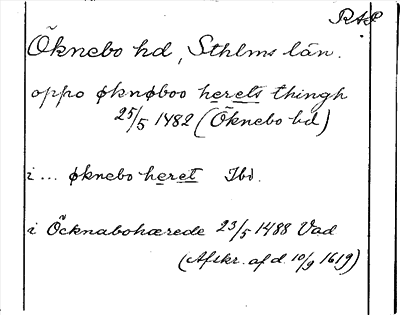 RAP
Öknebo hd, Sthlms län.
oppo øknøboo herets thingh
25/5 1482 (Öknebo hd)
i ... øknebo heret Ibd.
i Öcknabohærede 23/5 1488 Vad
(Afskr. af d. 10/9 1619)